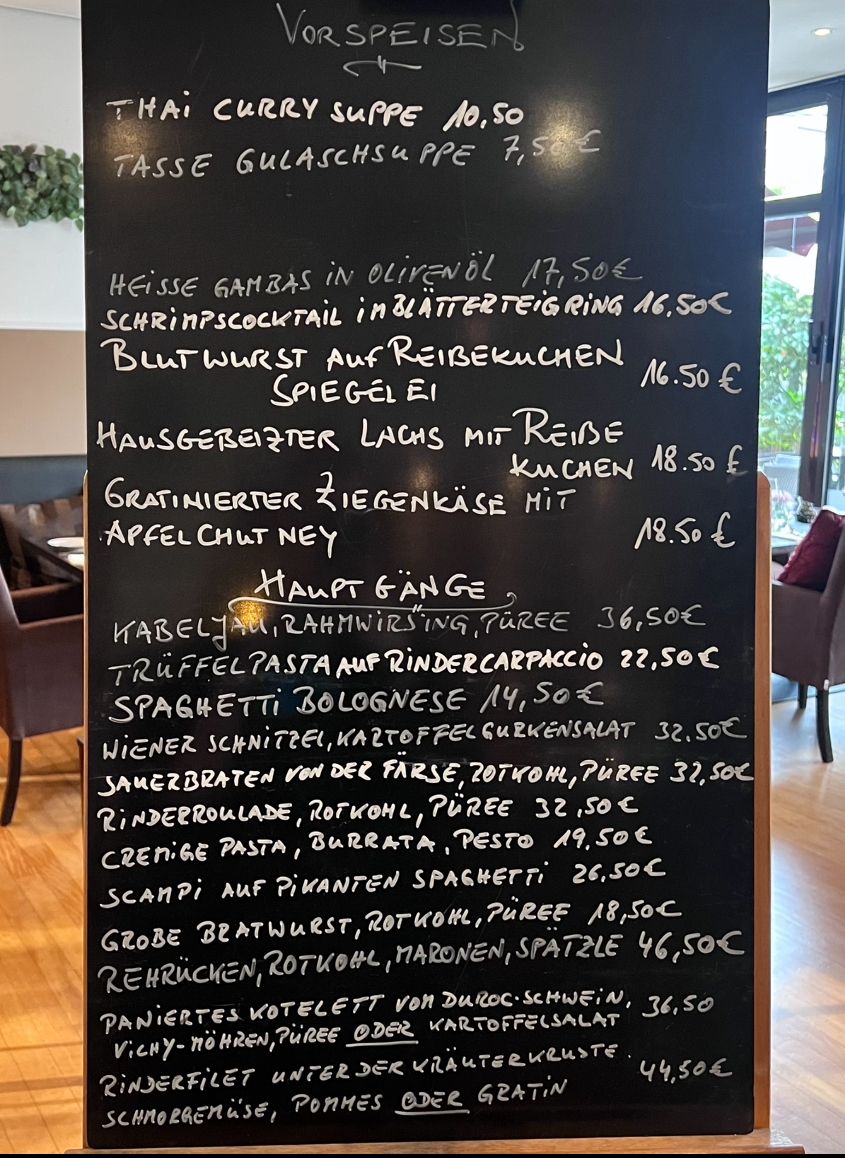 VORSPEISEN
THAi CURRY SUPPE 10,50
TASSE GULASCHSUPPE 7,50€
HEISSE GAMBAS IN OLIVENÖL 17,50€
SCHRIMPSCOCKTAIL IM BLÄTTERTEIGRING 16,50€
BLUTWURST AUF REIBEKUCHEN
SPIEGELEI 16.50 €
HAUSGEBEIZTER LACHS MIT REIBE
KUCHEN 18.50 €
GRATINIERTER ZIEGENKÄSE MIT
APFELCHUTNEY 18.50 €
HAUPTGÄNGE
KABELJAU, RAHMWIRSING, PÜREE 36,50€
TRÜFFELPASTA AUF RINDERCARPACCIO 22,50€
SPAGHETTI BOLOGNESE 14,50€
WIENER SCHNITZEL, KARTOFFELGURKENSALAT 32,50€
SAUERBRATEN VON DER FÄRSE, ROTKOHL, PÜREE 32,50€
RINDERROULADE, ROTKOHL, PÜREE 32,50€
CREMIGE PASTA, BURRATA, PESTO 19,50€
SCAMPI AUF PIKANTEN SPAGHETTI 26,50€
GROBE BRATWURST, ROTKOHL, PÜREE 18,50€
REHRÜCKEN, ROTKOHL, MARONEN, SPÄTZLE 46,50€
PANIERTES KOTELETT VOM DUROC-SCHWEIN, 36,50
VICHY-MÖHREN, PÜREE ODER KARTOFFELSALAT
RINDERFILET UNTER DER KRÄUTERKRUSTE. 44,50€
SCHMORGEMÜSE, POMMES ODER GRATIN